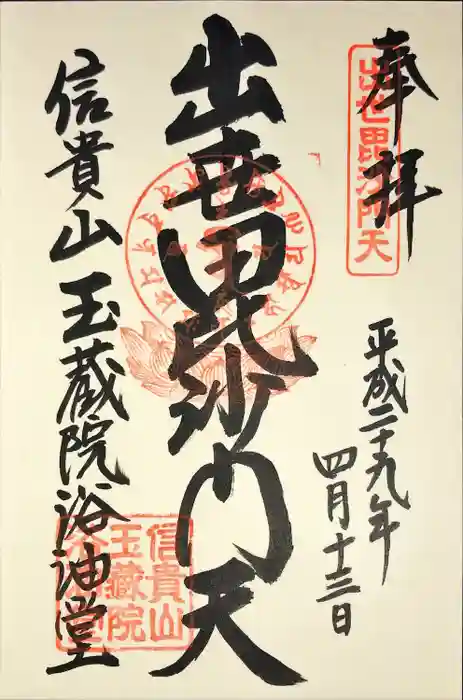 奉拝
出世毘沙門天
平成二十九年
四月十三日
出世毘沙门天
信貴山玉蔵院浴油堂
信貴山
玉蔵院